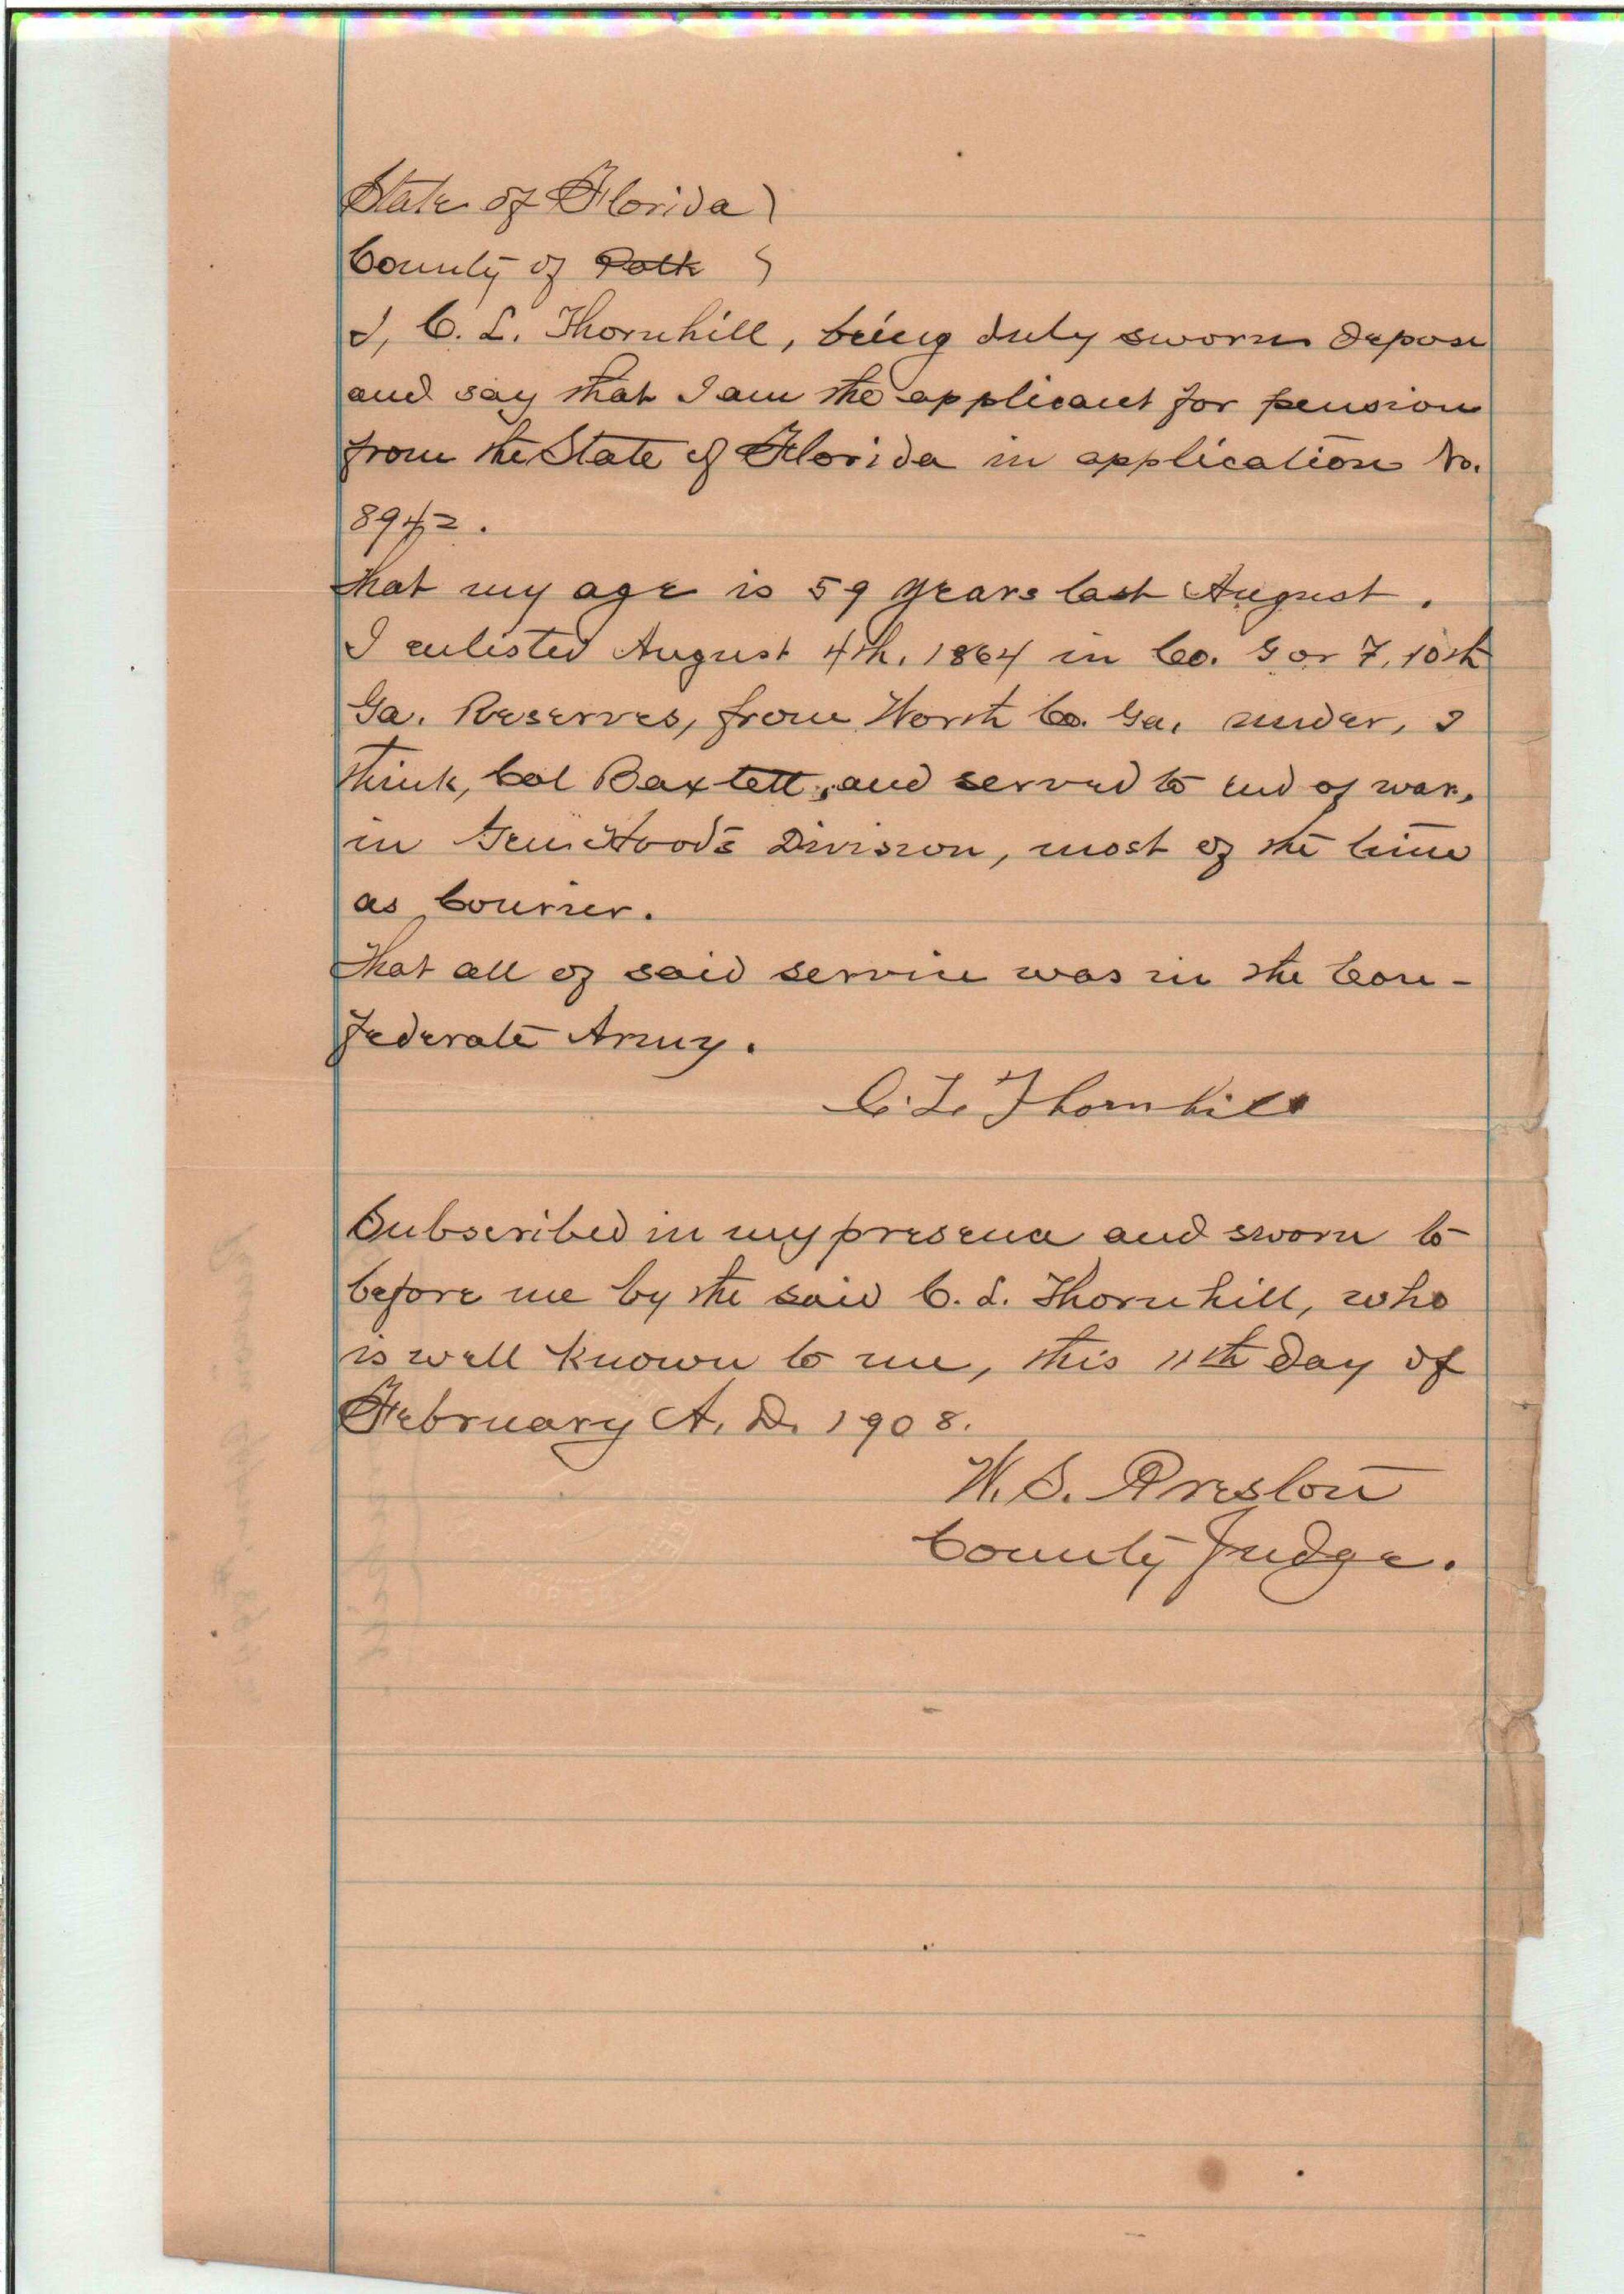 State of Florida )
County of Polk )
I, C. L. Thornhill, being duly sworn depose
and say that I am the applicant for pension
from the State of Florida in application No.
8942.
That my age is 59 years last August.
I enlisted August 4th, 1864 in Co. G or 7, 10th
Ga. Reserves, from Worth Co. Ga. under, I
think, Col Baxtett, and served to end of war,
in Gen. Hood's Division, most of the time
as Courier.
That all of said service was in the Con-
federate Army.
C. L. Thornhill
Subscribed in my presence and sworn to
before me by the said C. L. Thornhill, who
is well known to me, this 11th day of
February A. D. 1908.
W. S. Preston
County Judge.